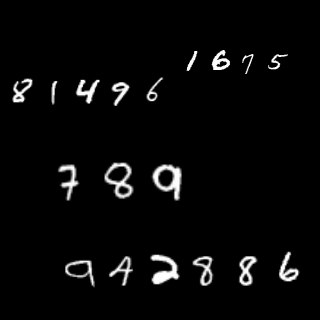 1675
81496
789
942886